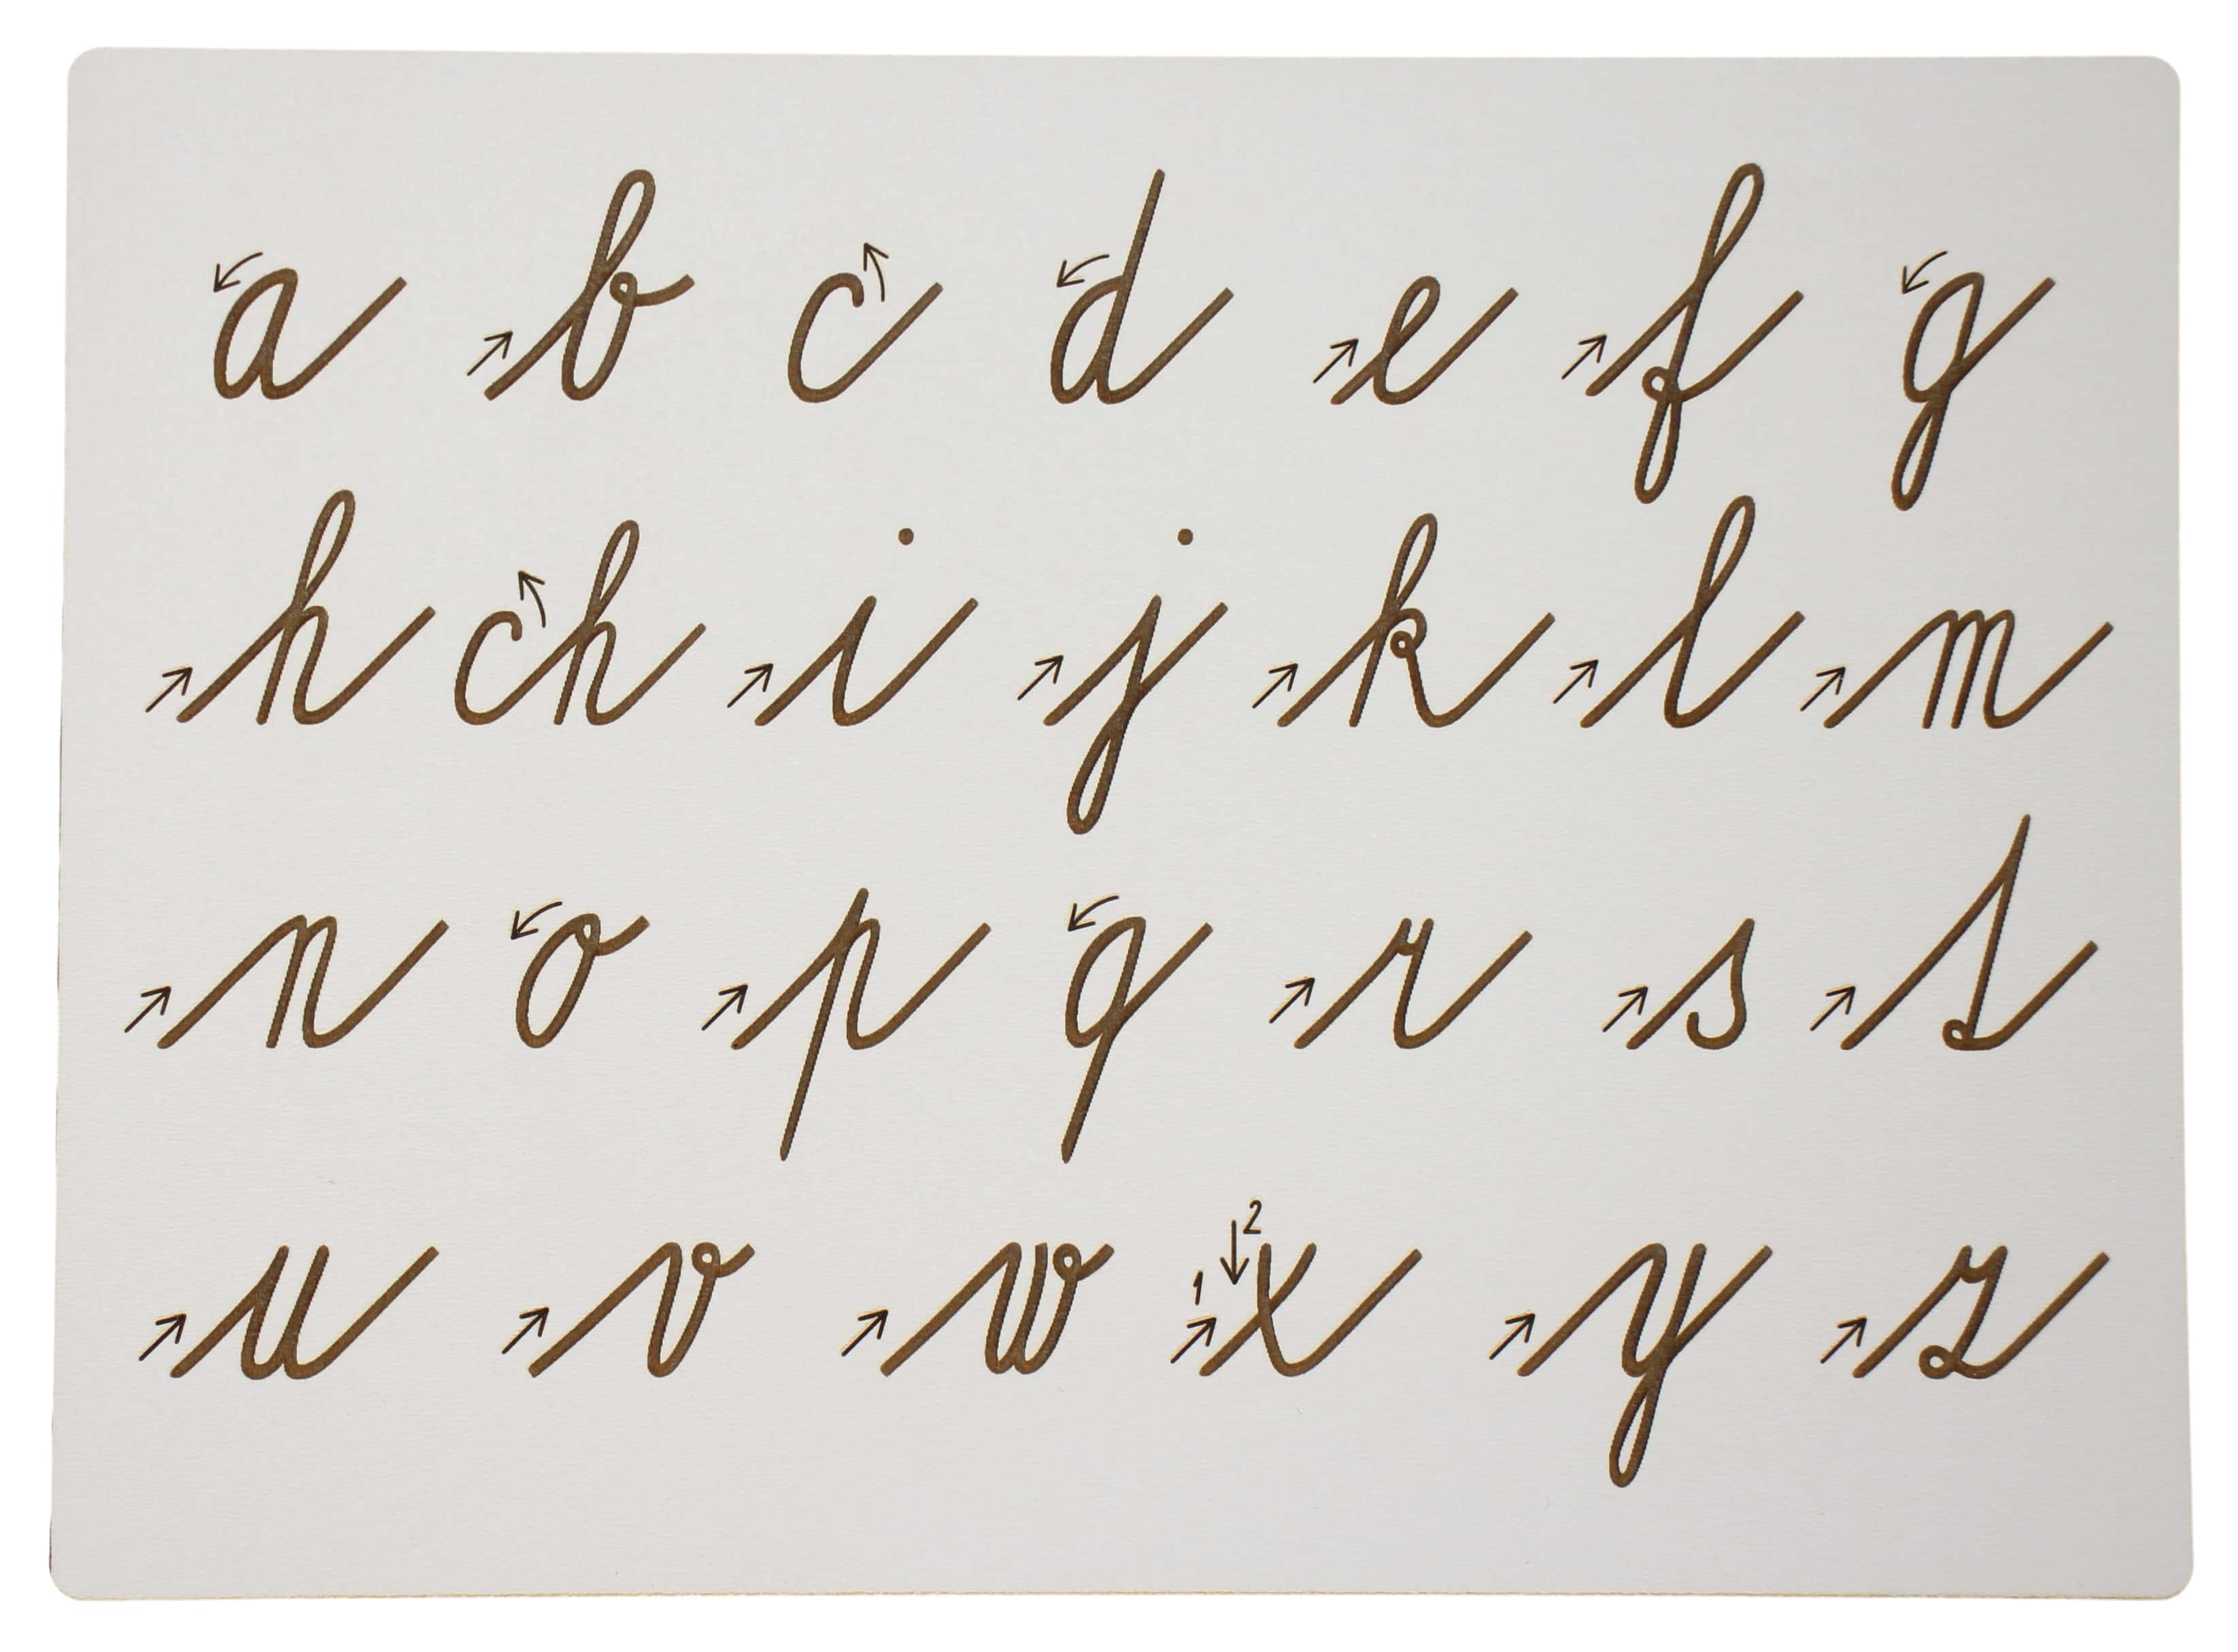 a b c d e f g
h ch i j k l m
n o p q r s t
u v w 1 2 x y z